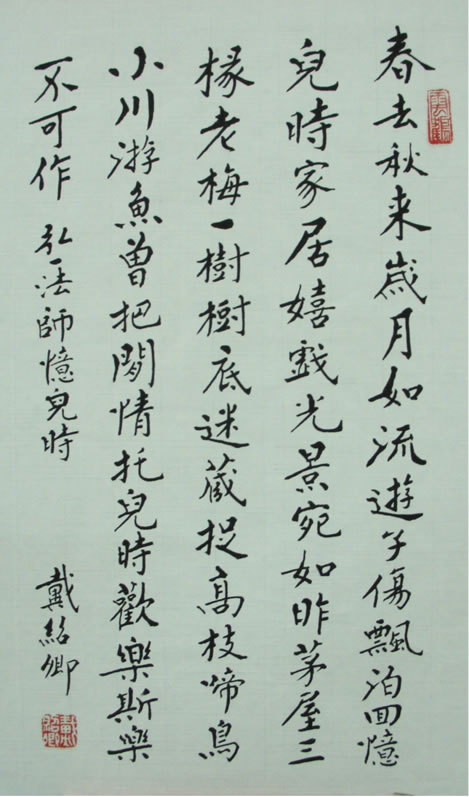 春去秋来嵗月如流遊子傷飄泊回憶
兒時家居嬉戲光景宛如昨茅屋三
椽老梅一樹樹底迷藏捉高枝啼鳥
小川游魚曾把閒情托兒時歡樂斯樂
不可作
弘一法師憶兒時
戴紹卿